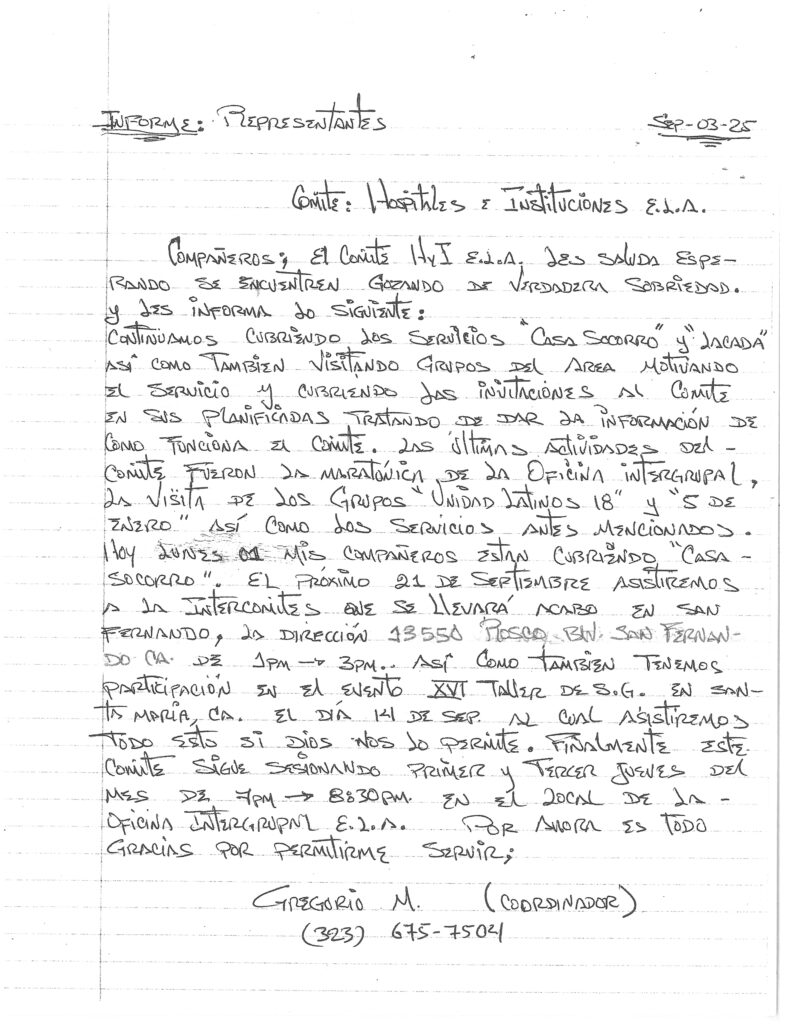 INFORME: REPRESENTANTES SEP-03-25
COMITE: HOSPITALES E INSTITUCIONES E.L.A.
COMPAÑEROS; EL COMITE HyI E.L.A. LES SALUDA ESPE-
RANDO SE ENCUENTREN GOZANDO DE VERDADERA SOBRIEDAD.
Y LES INFORMA LO SIGUIENTE:
CONTINUAMOS CUBRIENDO LOS SERVICIOS "CASA SOCORRO" Y "LACADA"
ASÍ COMO TAMBIEN VISITANDO GRUPOS DEL AREA MOTIVANDO
EL SERVICIO Y CUBRIENDO LAS INVITACIONES AL COMITE
EN SUS PLANIFICADAS TRATANDO DE DAR LA INFORMACIÓN DE
COMO FUNCIONA EL COMITE. LAS ÚLTIMAS ACTIVIDADES DEL -
COMITE FUERON LA MARATÓNICA DE LA OFICINA INTERGRUPAL,
LA VISITA DE LOS GRUPOS "UNIDAD LATINOS 18" Y "5 DE
ENERO" ASÍ COMO LOS SERVICIOS ANTES MENCIONADOS.
HOY LUNES 01 MIS COMPAÑEROS ESTAN CUBRIENDO "CASA -
SOCORRO". EL PRÓXIMO 21 DE SEPTIEMBRE ASISTIREMOS
A LA INTERCOMITES QUE SE LLEVARÁ ACABO EN SAN
FERNANDO, LA DIRECCIÓN 13550 ROSCO BLV. SAN FERNAN-
DO CA. DE 1PM → 3PM.. ASÍ COMO TAMBIEN TENEMOS
PARTICIPACIÓN EN EL EVENTO XVI TALLER DE S.G. EN SAN-
TA MARÍA, CA. EL DÍA 14 DE SEP. AL CUAL ASISTIREMOS
TODO ESTO SI DIOS NOS LO PERMITE. FINALMENTE ESTE
COMITE SIGUE SESIONANDO PRIMER Y TERCER JUEVES DEL
MES DE 7PM → 8:30PM. EN EL LOCAL DE LA -
OFICINA INTERGRUPAL E.L.A. POR AHORA ES TODO
GRACIAS POR PERMITIRME SERVIR;
GREGORIO M. (COORDINADOR)
(323) 675-7504